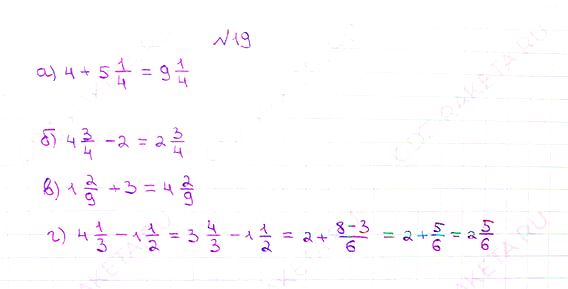 №19
а) 4 + 5 1/4 = 9 1/4
б) 4 3/4 - 2 = 2 3/4
в) 1 2/9 + 3 = 4 2/9
г) 4 1/3 - 1 1/2 = 3 4/3 - 1 1/2 = 2 + 8-3/6 = 2 + 5/6 = 2 5/6